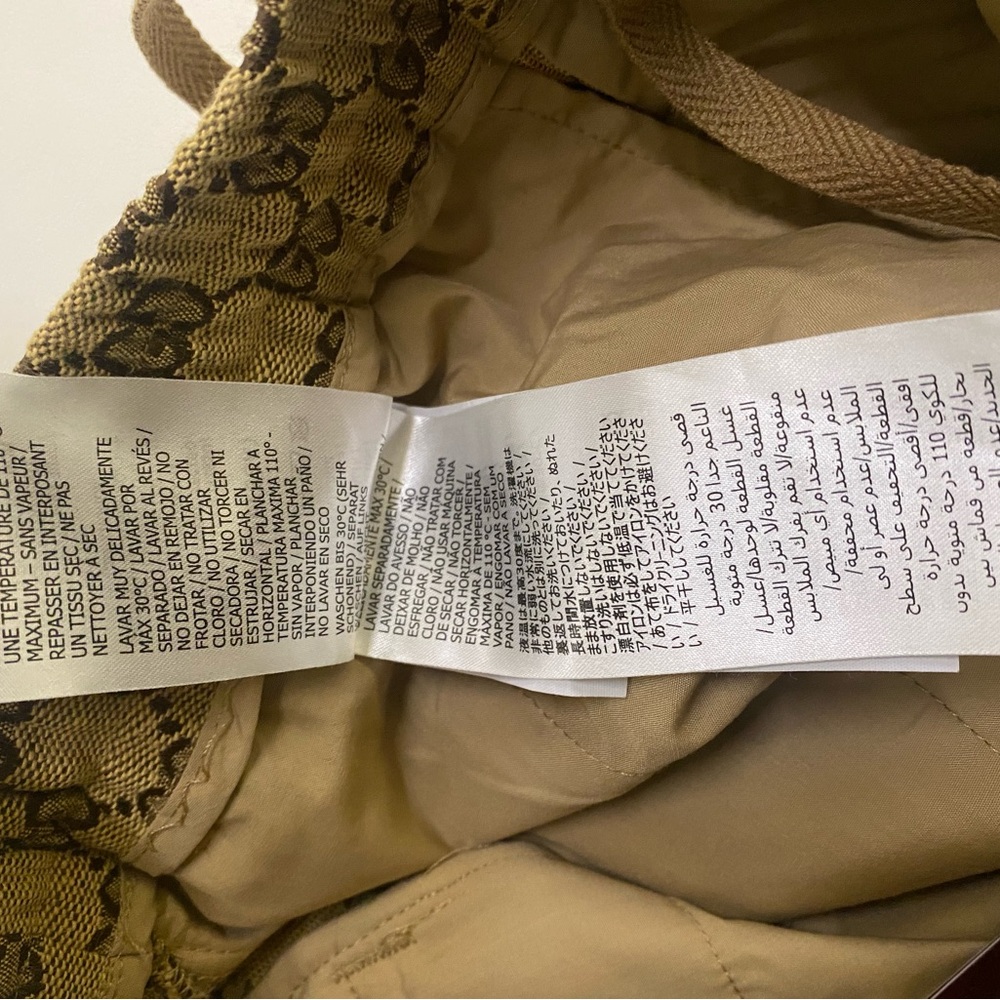 UNE TEMPÉRATURE DE 110°
MAXIMUM – SANS VAPEUR /
REPASSER EN INTERPOSANT
UN TISSU SEC / NE PAS
NETTOYER À SEC
LAVAR MUY DELICADAMENTE
MAX 30°C/ LAVAR POR
SEPARADO / LAVAR AL REVÉS /
NO DEJAR EN REMOJO / NO
FROTAR / NO TRATAR CON
CLORO / NO UTILIZAR
SECADORA / NO TORCER NI
ESTRUJAR / SECAR EN
HORIZONTAL / PLANCHAR A
TEMPERATURA MAXIMA 110° -
SIN VAPOR / PLANCHAR
INTERPONIENDO UN PAÑO /
NO LAVAR EN SECO
WASCHBIS 30°C (SEHR
SCHONEND)/ SEPARAT
MAX 30°C /
LAVAR SEPARADAMENTE /
LAVAR DO AVESSO / NÃO
DEIXAR DE MOLHO / NÃO
ESFREGAR / NÃO TRATAR COM
CLORO / NÃO USAR MÁQUINA
DE SECAR / NÃO TORCER
SECAR HORIZONTALMENTE /
ENGOMAR A TEMPERATURA
MÁXIMA DE 110 °C SEM
VAPOR / ENGOMAR COM
PANO / NÃO LAVAR A SECO
液温は最高30度まで、洗濯機は
非常に弱い水流にしてください /
他のものとは別に洗ってください /
裏返しにしてください /
長時間水につけておいたり、ぬれた
まま放置しないでください /
こすり洗いはしないでください /
漂白剤を使用しないでください
アイロンは必ず低温で当ててくださ
い / あて布をしてアイロンをかけてくださ
い / ドライクリーニングはお避けくださ
い / 平干ししてください
قصى درجة حرارة للغسيل
الناعم جدا 30 درجة مئوية
غسل القطعة لوحدها/غسل
القطعة مقلوبة/لا تترك القطعة
منقوعة/لا تقم بفرك الملابس
عدم استخدام أي مبيض/
عدم استخدام مجففة/
الملابس/عدم عصر أو لي
القطعة/التجفيف على سطح
أفقي/أقصى درجة حرارة
للكوي 110 درجة مئوية بدون
بخار/قطعة من قماش بين